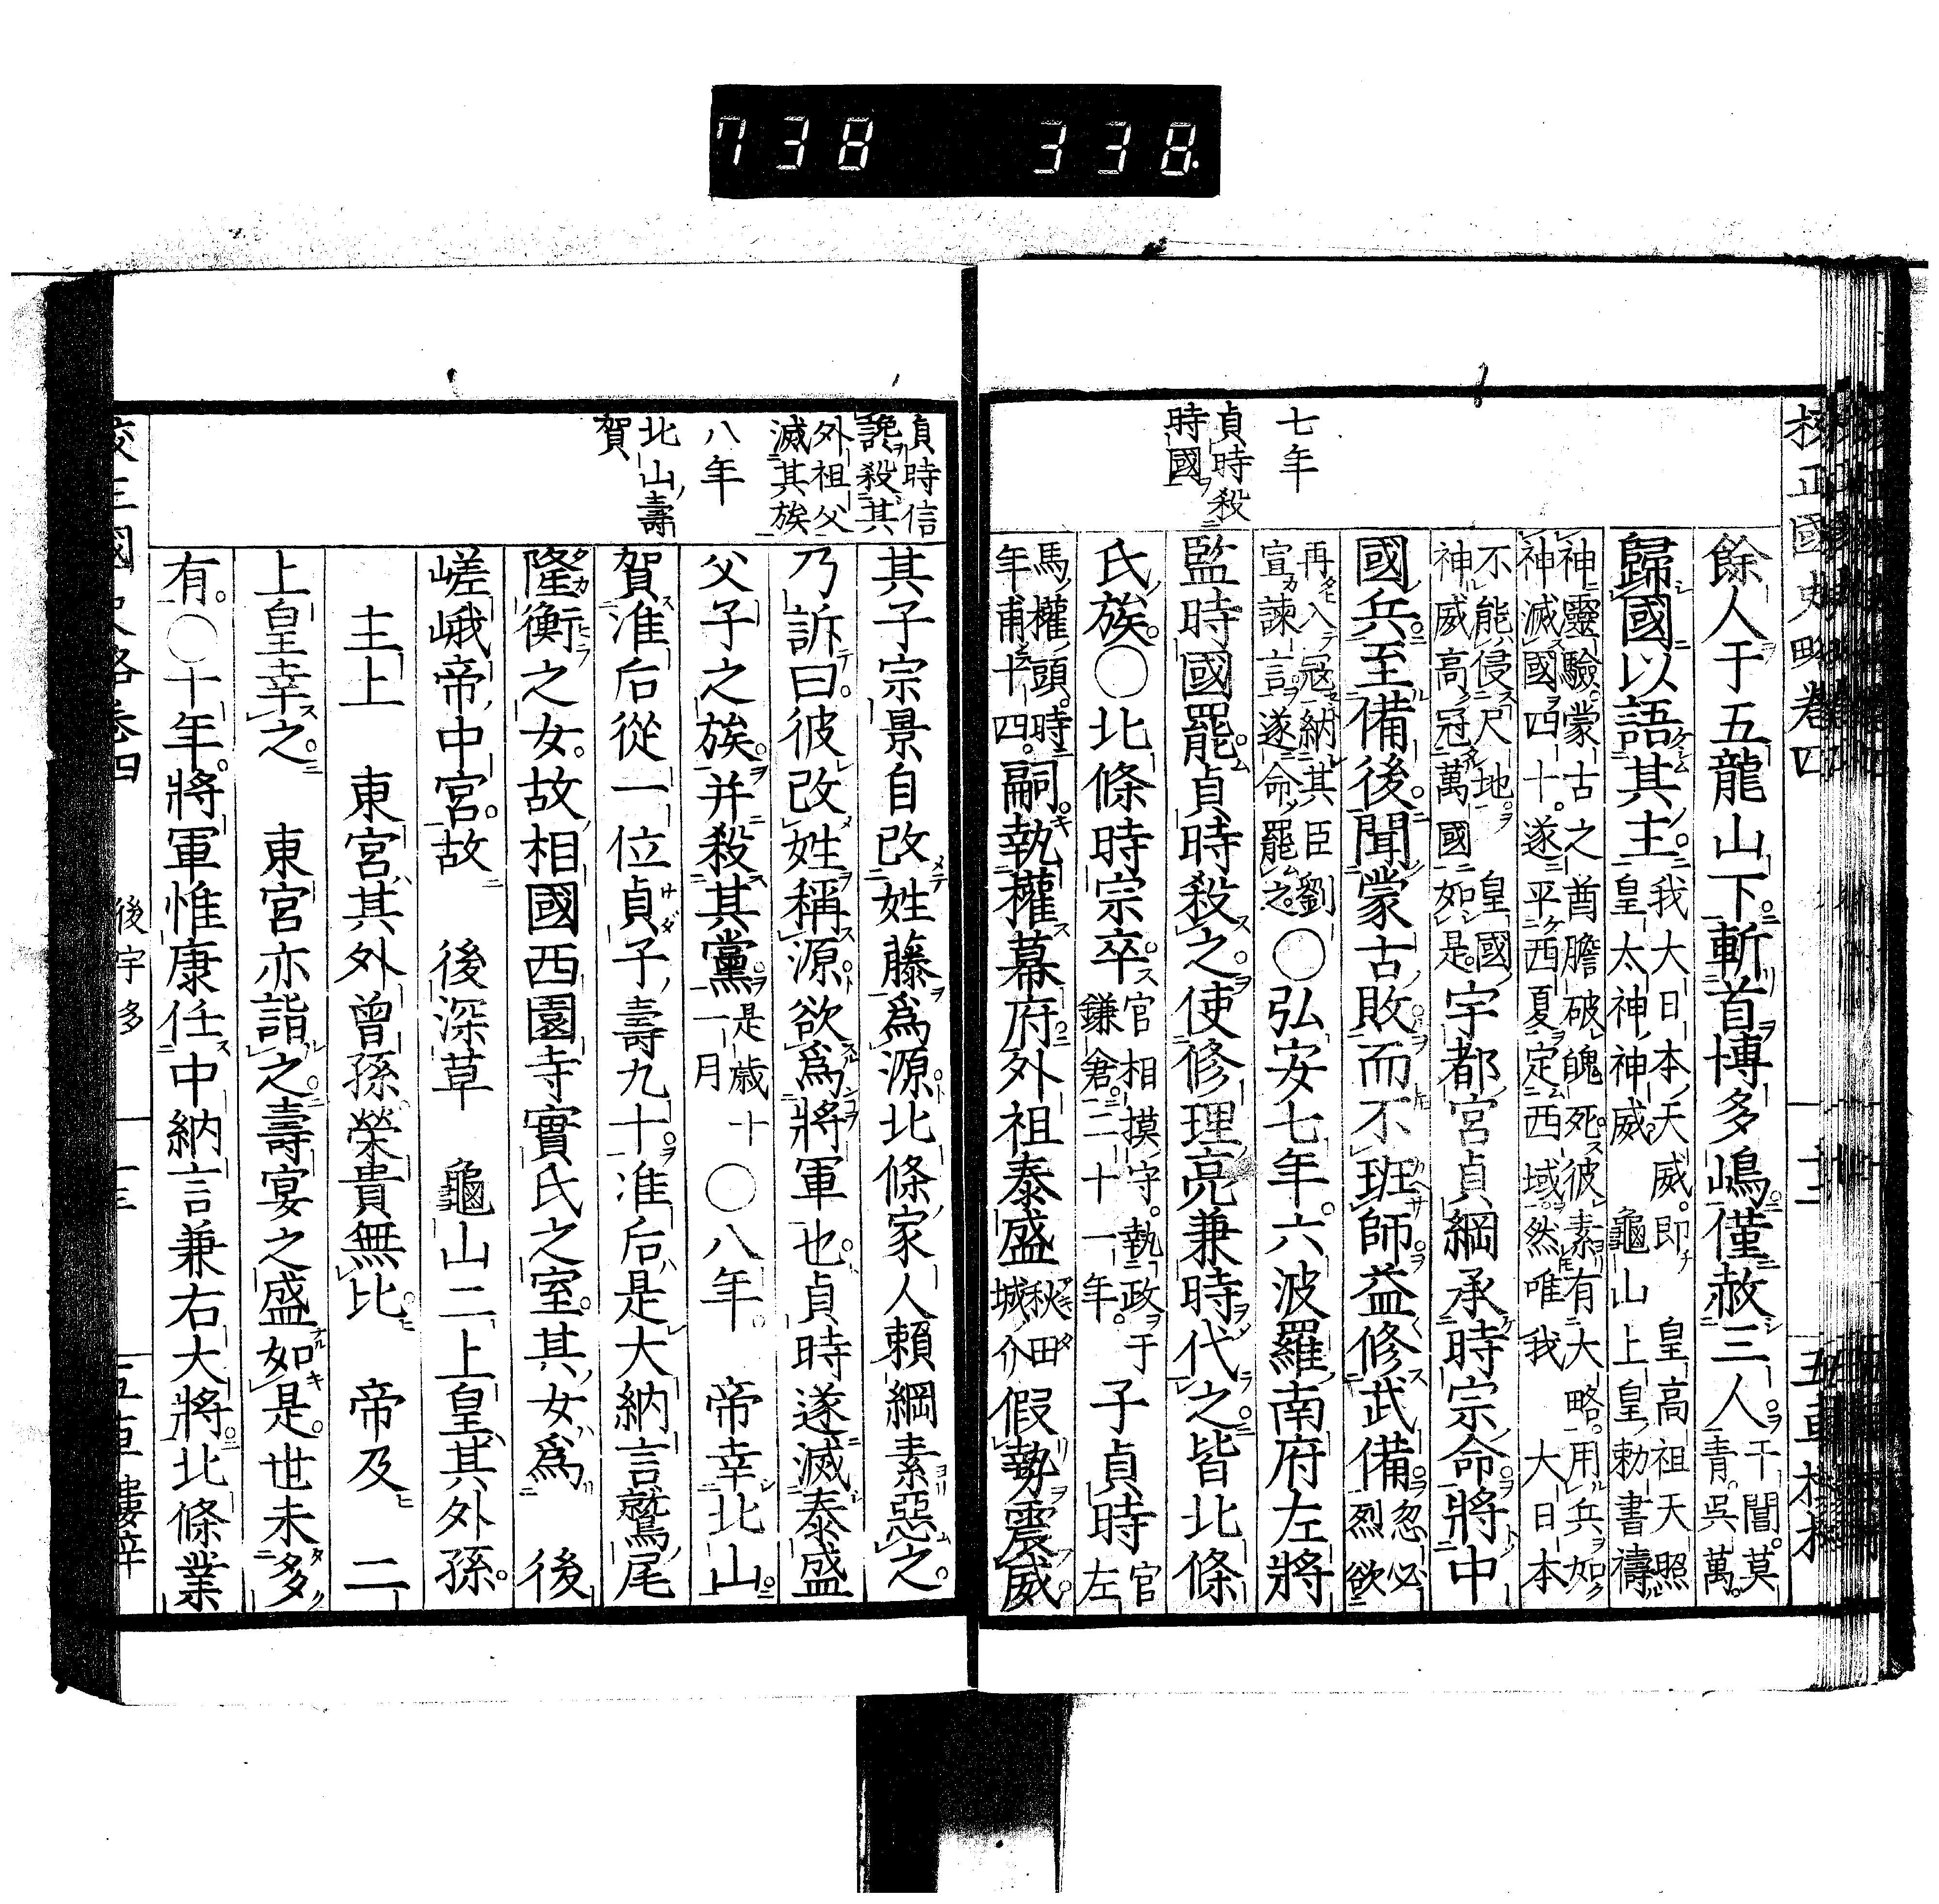 738 338.
校正國史略卷四
七年
貞時殺
時國
餘人于五龍山下斬首博多嶋僅赦三人干閶莫青呉萬
歸國以語其主我大日本天威即皇高祖天照皇太神神威龜山上皇勅書禱
神靈驗蒙古之酋膽破魄死彼素有大略用兵如神滅國四十遂平西夏定西域然唯我大日本
不能侵尺地皇國神威高冠萬國如是宇都宮貞綱承時宗命將中
國兵至備後聞蒙古敗而不班師益修武備忽必烈欲
再入寇納其臣劉宣諫言遂命罷之〇弘安七年六波羅南府左將
監時國罷貞時殺之使修理亮兼時代之皆北條
氏族〇北條時宗卒官相摸守執政于鎌倉二十一年子貞時官左
馬權頭時年甫十四嗣執權幕府外祖泰盛秋田城介假勢震威
貞時信
讒殺其
外祖父
滅其族
八年
北山壽
賀
其子宗景自改姓藤爲源北條家人賴綱素惡之
乃訴曰彼改姓稱源欲爲將軍也貞時遂滅泰盛
父子之族并殺其黨是歳十一月〇八年帝幸北山
賀准后從一位貞子壽九十准后是大納言鷲尾
隆衡之女故相國西園寺實氏之室其女爲後
嵯峨帝中宮故後深草龜山二上皇其外孫
主上東宮其外曾孫榮貴無比帝及二
上皇幸之東宮亦詣之壽宴之盛如是世未多
有〇十年將軍惟康任中納言兼右大將北條業
後宇多